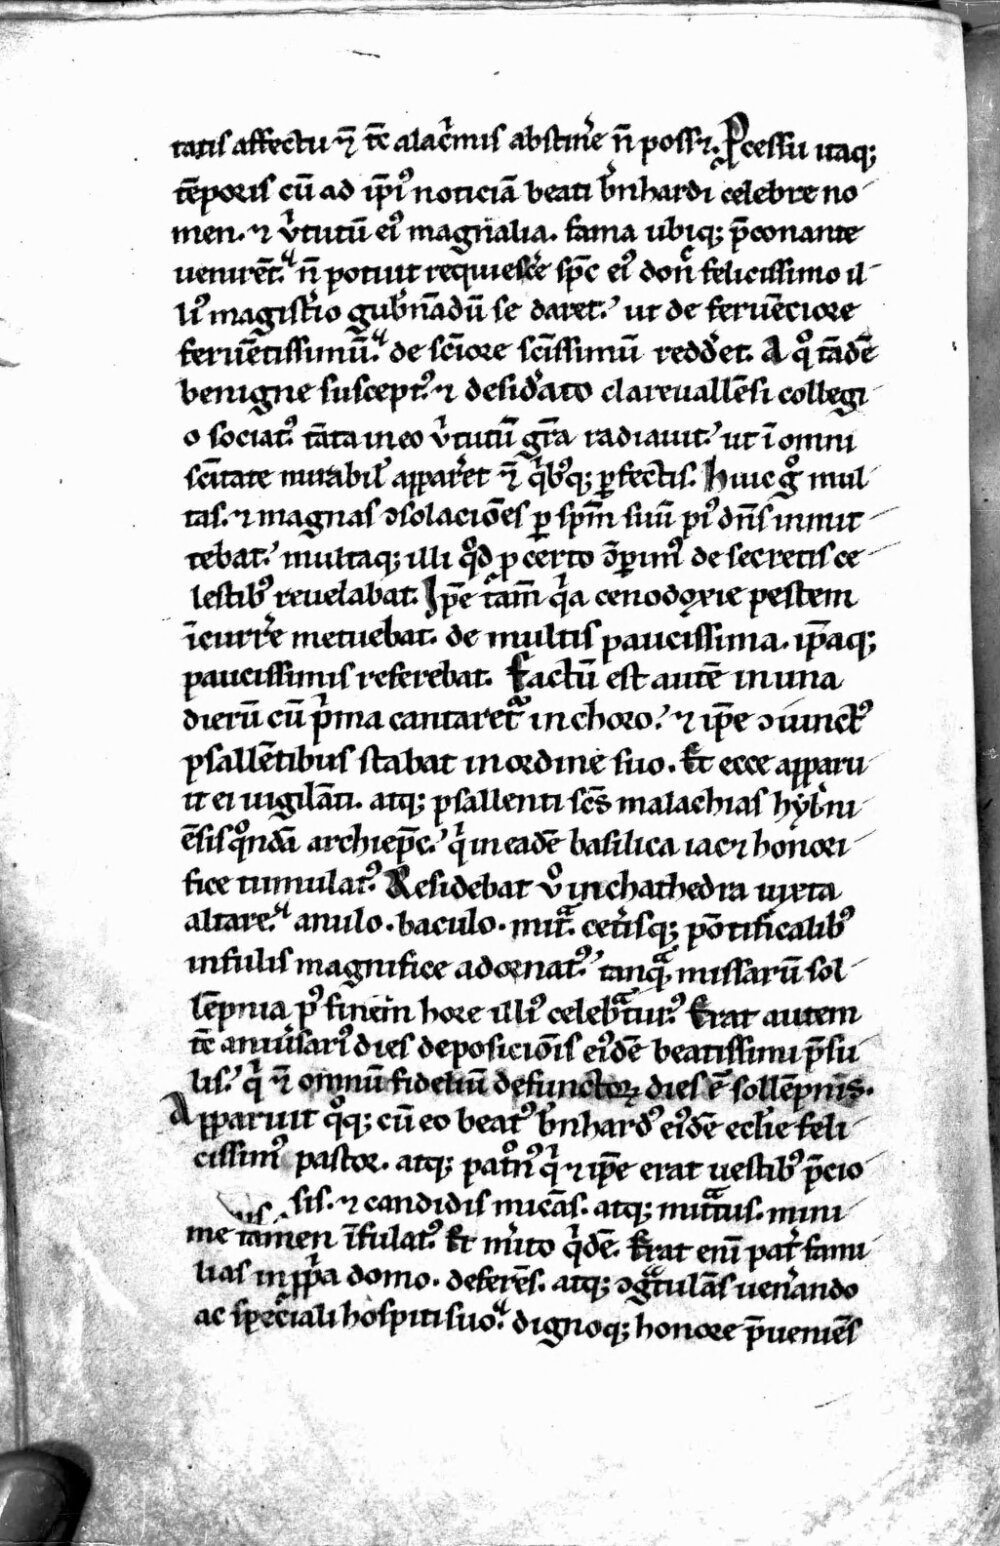 tatis affectu ⁊̄ tē alac̄mis abstin̄e n̄ poss⁊. Pcessu itaq;
tēporis cū ad ip̄i⁹ noticiā beati b̄nhardi celebre no
men. ⁊ v̓tutū ei⁹ magnalia. fama ubiq; p̄conante
venirēt. n̄ potuit requiesc̄e sp̄c ei⁹ donc̄ felicissimo il
li⁹ magist̓io gub̄nādū se daret. ut de feruēciore
feruētissimū. de scīore scīssimū redd̓et. A q̊ tādē
benigne suscept⁹. ⁊ desid̓ato clareuallēsi collegi
o sociat⁹. tāta in eo v̓tutū gr̄a radiauit. ut ī omni
scītate mirabil̓ appar̓et ⁊̄ q̓b⁹q; ꝑfectis. Huic g̊ mul
tas. ⁊ magnas ↄsolaciōes ꝑ sp̄m suū pi⁹ dn̄s inmit
tebat. multaq; illi q̊d p certo ↄꝑim⁹ de secretis ce
lestib⁹ reuelabat. Ip̄e tām̄ q̓a cenodoxie pestem
īcurr̓e metuebat. de multis paucissima. ip̄aq;
paucissimis referebat. Factū est autē in una
dierū cū p̓ma cantaret̃ in choro. ⁊ ip̄e ↄiunct⁹
psallētibus stabat in ordine suo. Et ecce apparu
it ei uigilāti. atq; psallenti scs̄ malachias hyb̓ni
ēsis q̊ndā archiep̄c. q̓ in eadē basilica iac⁊ honori
fice tumulat⁹. Residebat v̊ in chathedra iuxta
altare. anulo. baculo. mit̃. cet̓isq; pōtificalib⁹
infulis magnifice adornat⁹. tanq̃ missarū sol
lēpnia p⁹ finem hore illi⁹ celebt̃ur⁹. Erat autem
tē aniu̓sari⁹ dies deposiciōis ei⁹dē beatissimi p̄su
lis. q̓ ⁊̄ omniū fideliū defunctoꝝ dies ē sollēpnis.
Apparuit q̊q; cū eo beat⁹ b̄nhard⁹ ei⁹dē ecl̄ie feli
cissim⁹ pastor. atq; pat̊n⁹ q̓ ⁊ ip̄e erat uestib⁹ p̄cio
sis. ⁊ candidis micās. atq; mit̃tus. mini
me tamen īfulat⁹. Et m̓ito q̓dē. Erat eni̅ pat̓ fami
lias in pp̓a domo. deferēs. atq; ↄg̃tulās uen̓ando
ac sp̄ciali hospiti suo. dignoq; honore p̄ueniēs